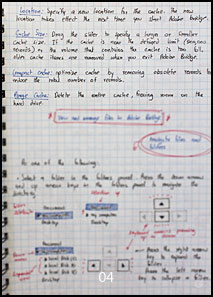 Location: Specify a new location for the cache. The new
location takes effect the next time you start Adobe Bridge.
Cache Size: Drag the slider to specify a larger or smaller
cache size. If the cache is near the defined limit (500,000
records) or the volume that contains the cache is too full,
older cache items are removed when you exit Adobe Bridge.
Compact Cache: optimize cache by removing obsolete records to
reduce the total number of records.
Purge Cache: Delete the entire cache, freeing room on the
hard drive.
View and manage files in Adobe Bridge
Navigate files and
folders
Do one of the following:
Select a folder in the folders panel. Press the down arrow
and up arrow keys in the folders panel to navigate the
directory.
Desktop
my computer
Desktop
press the right arrow
key to expand the
folder.
Press the left arrow
key to collapse a folder.
Desktop
04